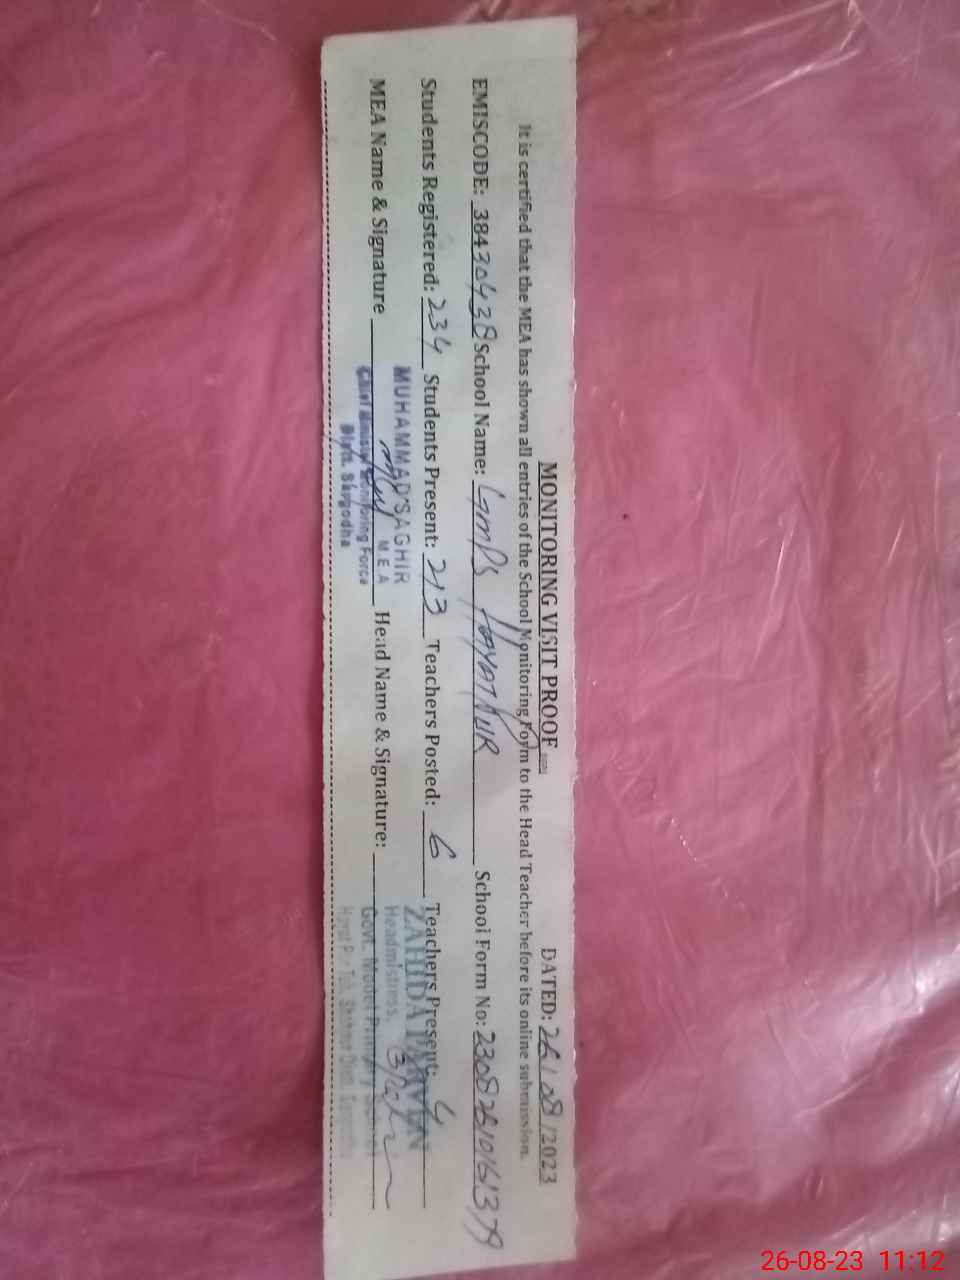 MONITORING VISIT PROOF DATED: 26/08/2023
It is certified that the MEA has shown all entries of the School Monitoring Form to the Head Teacher before its online submission.
EMISCODE: 38430438 School Name: GMPS HAYATPUR School Form No: 23082610161379
Students Registered: 234 Students Present: 213 Teachers Posted: 6 Teachers Present: 4
MEA Name & Signature Head Name & Signature:
MUHAMMAD SAGHIR
M.E.A
Chief Minister Monitoring Force
Distt. Sargodha
ZAHIDA PARVEEN
Headmistress,
Govt. Model Primary School
26-08-23 11:12